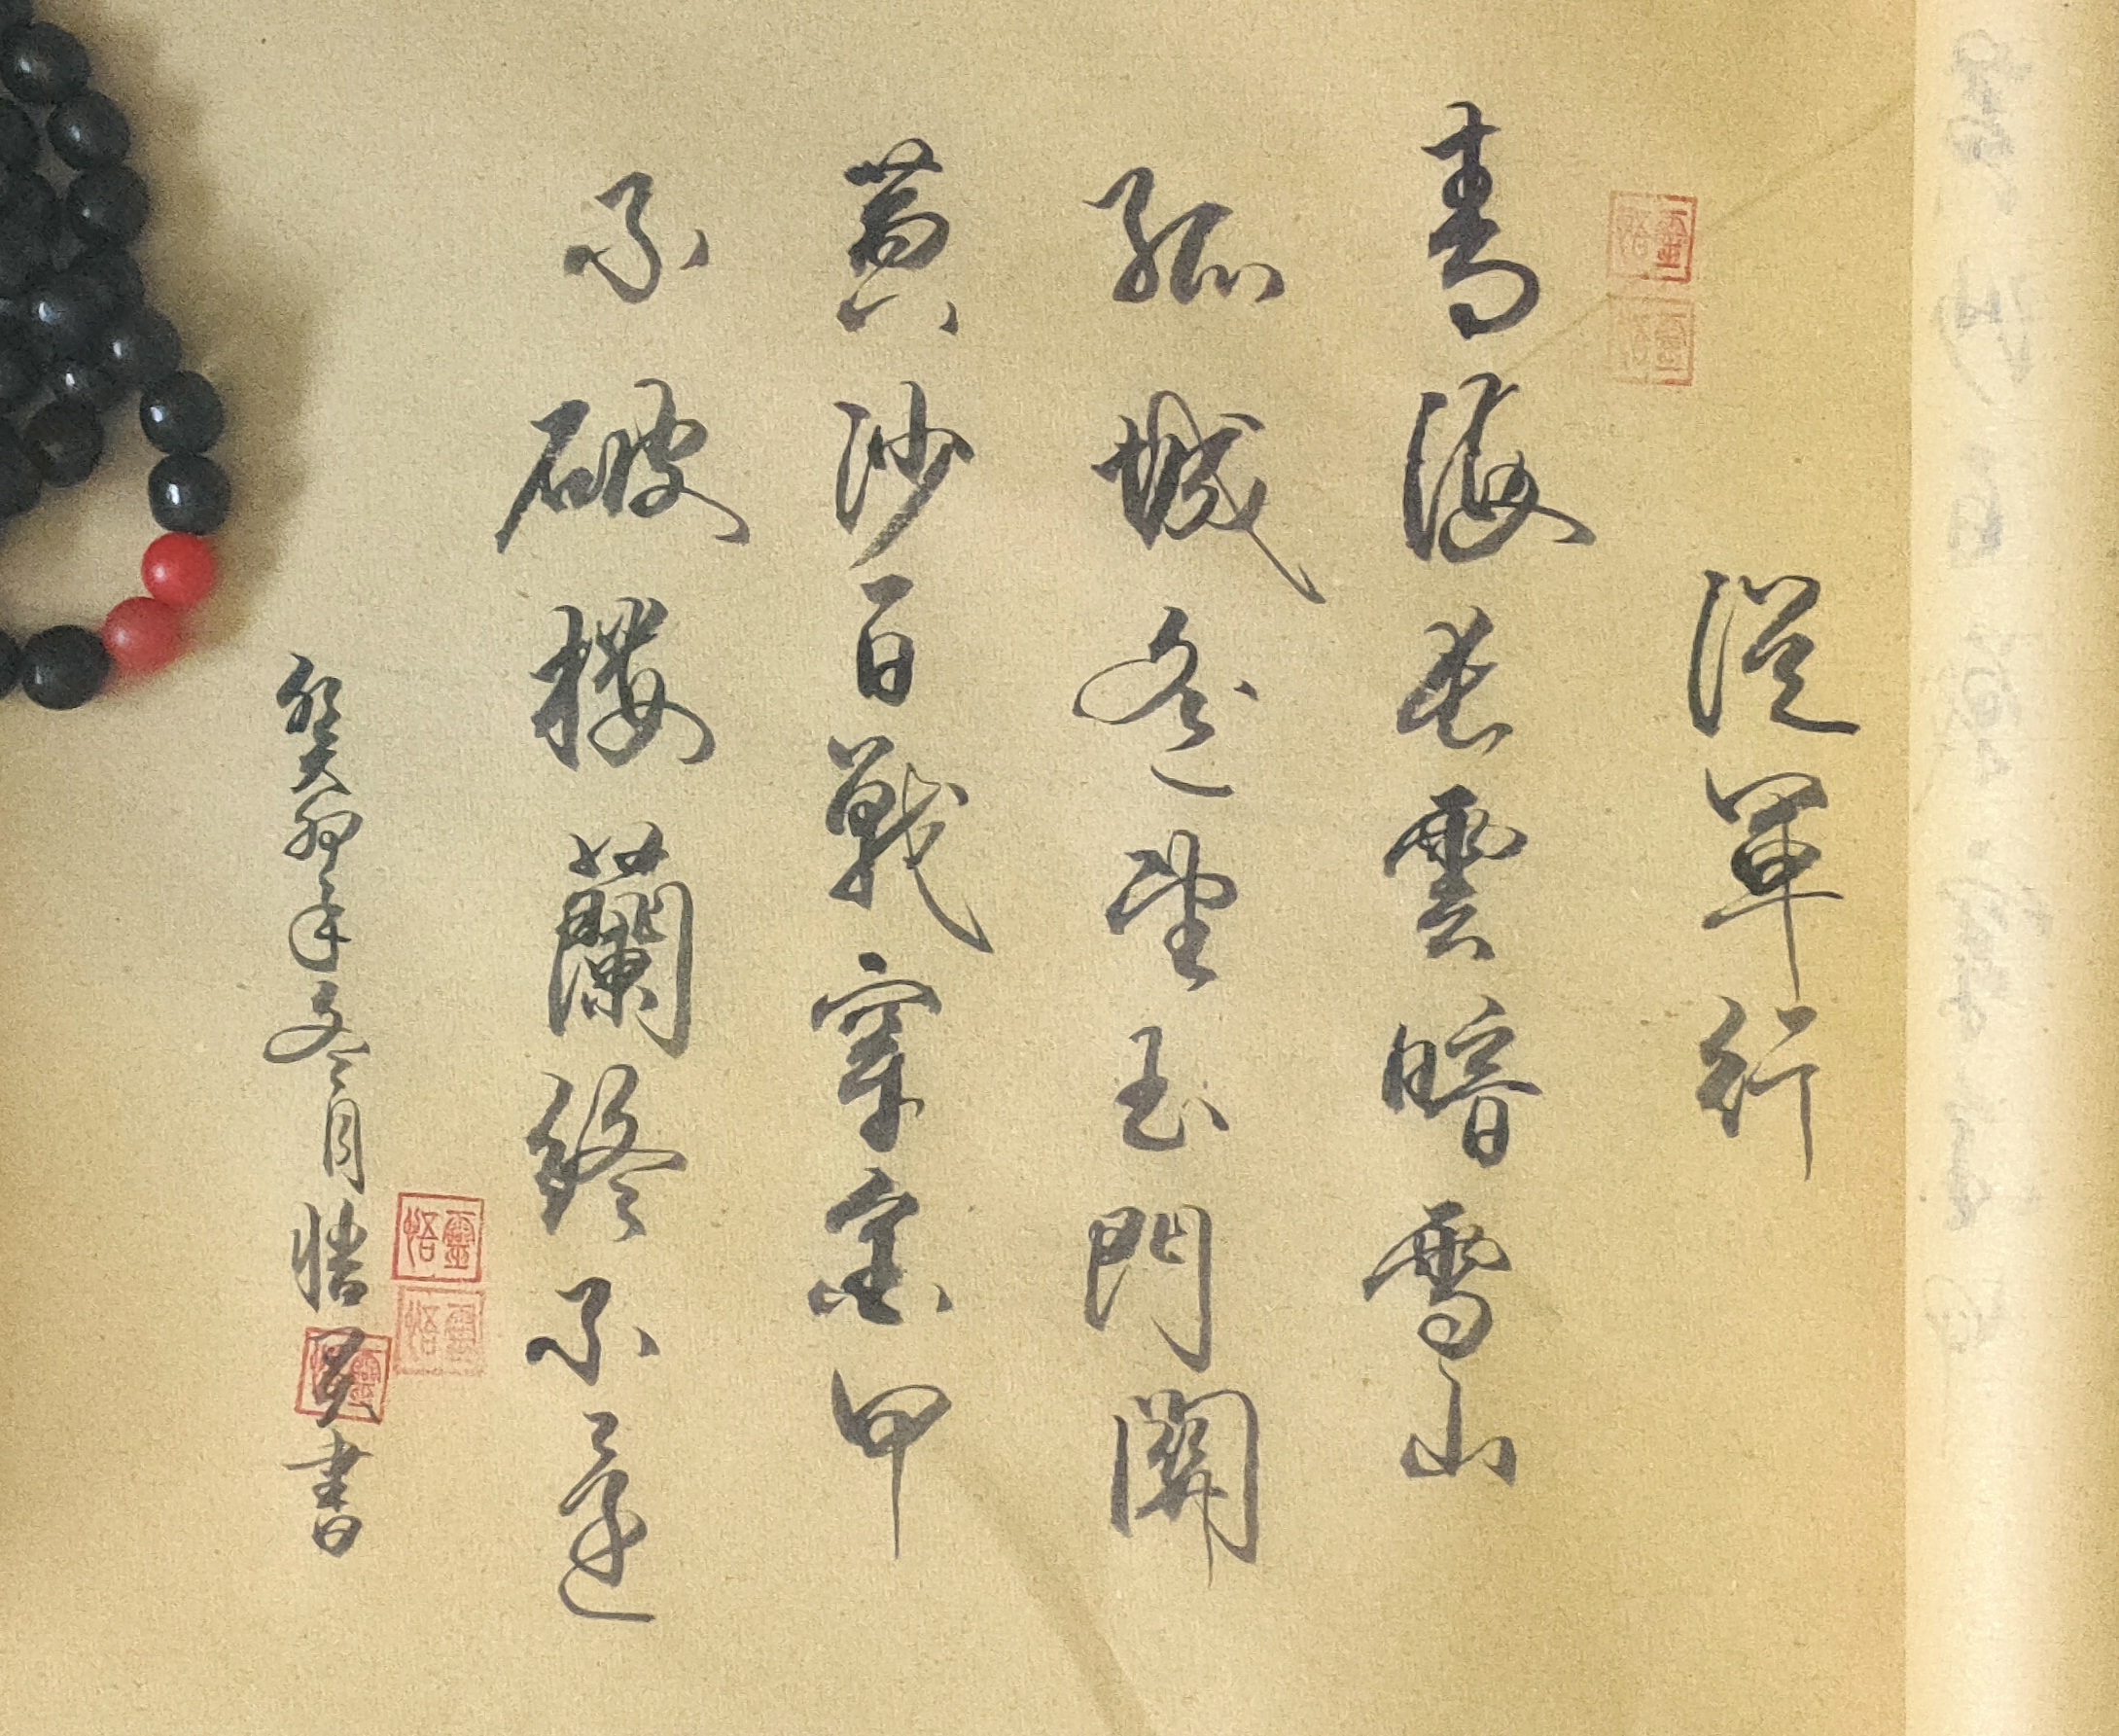 從軍行
青海長雲暗雪山
孤城遙望玉門關
黃沙百戰穿金甲
不破樓蘭終不還
癸卯年冬月悟書